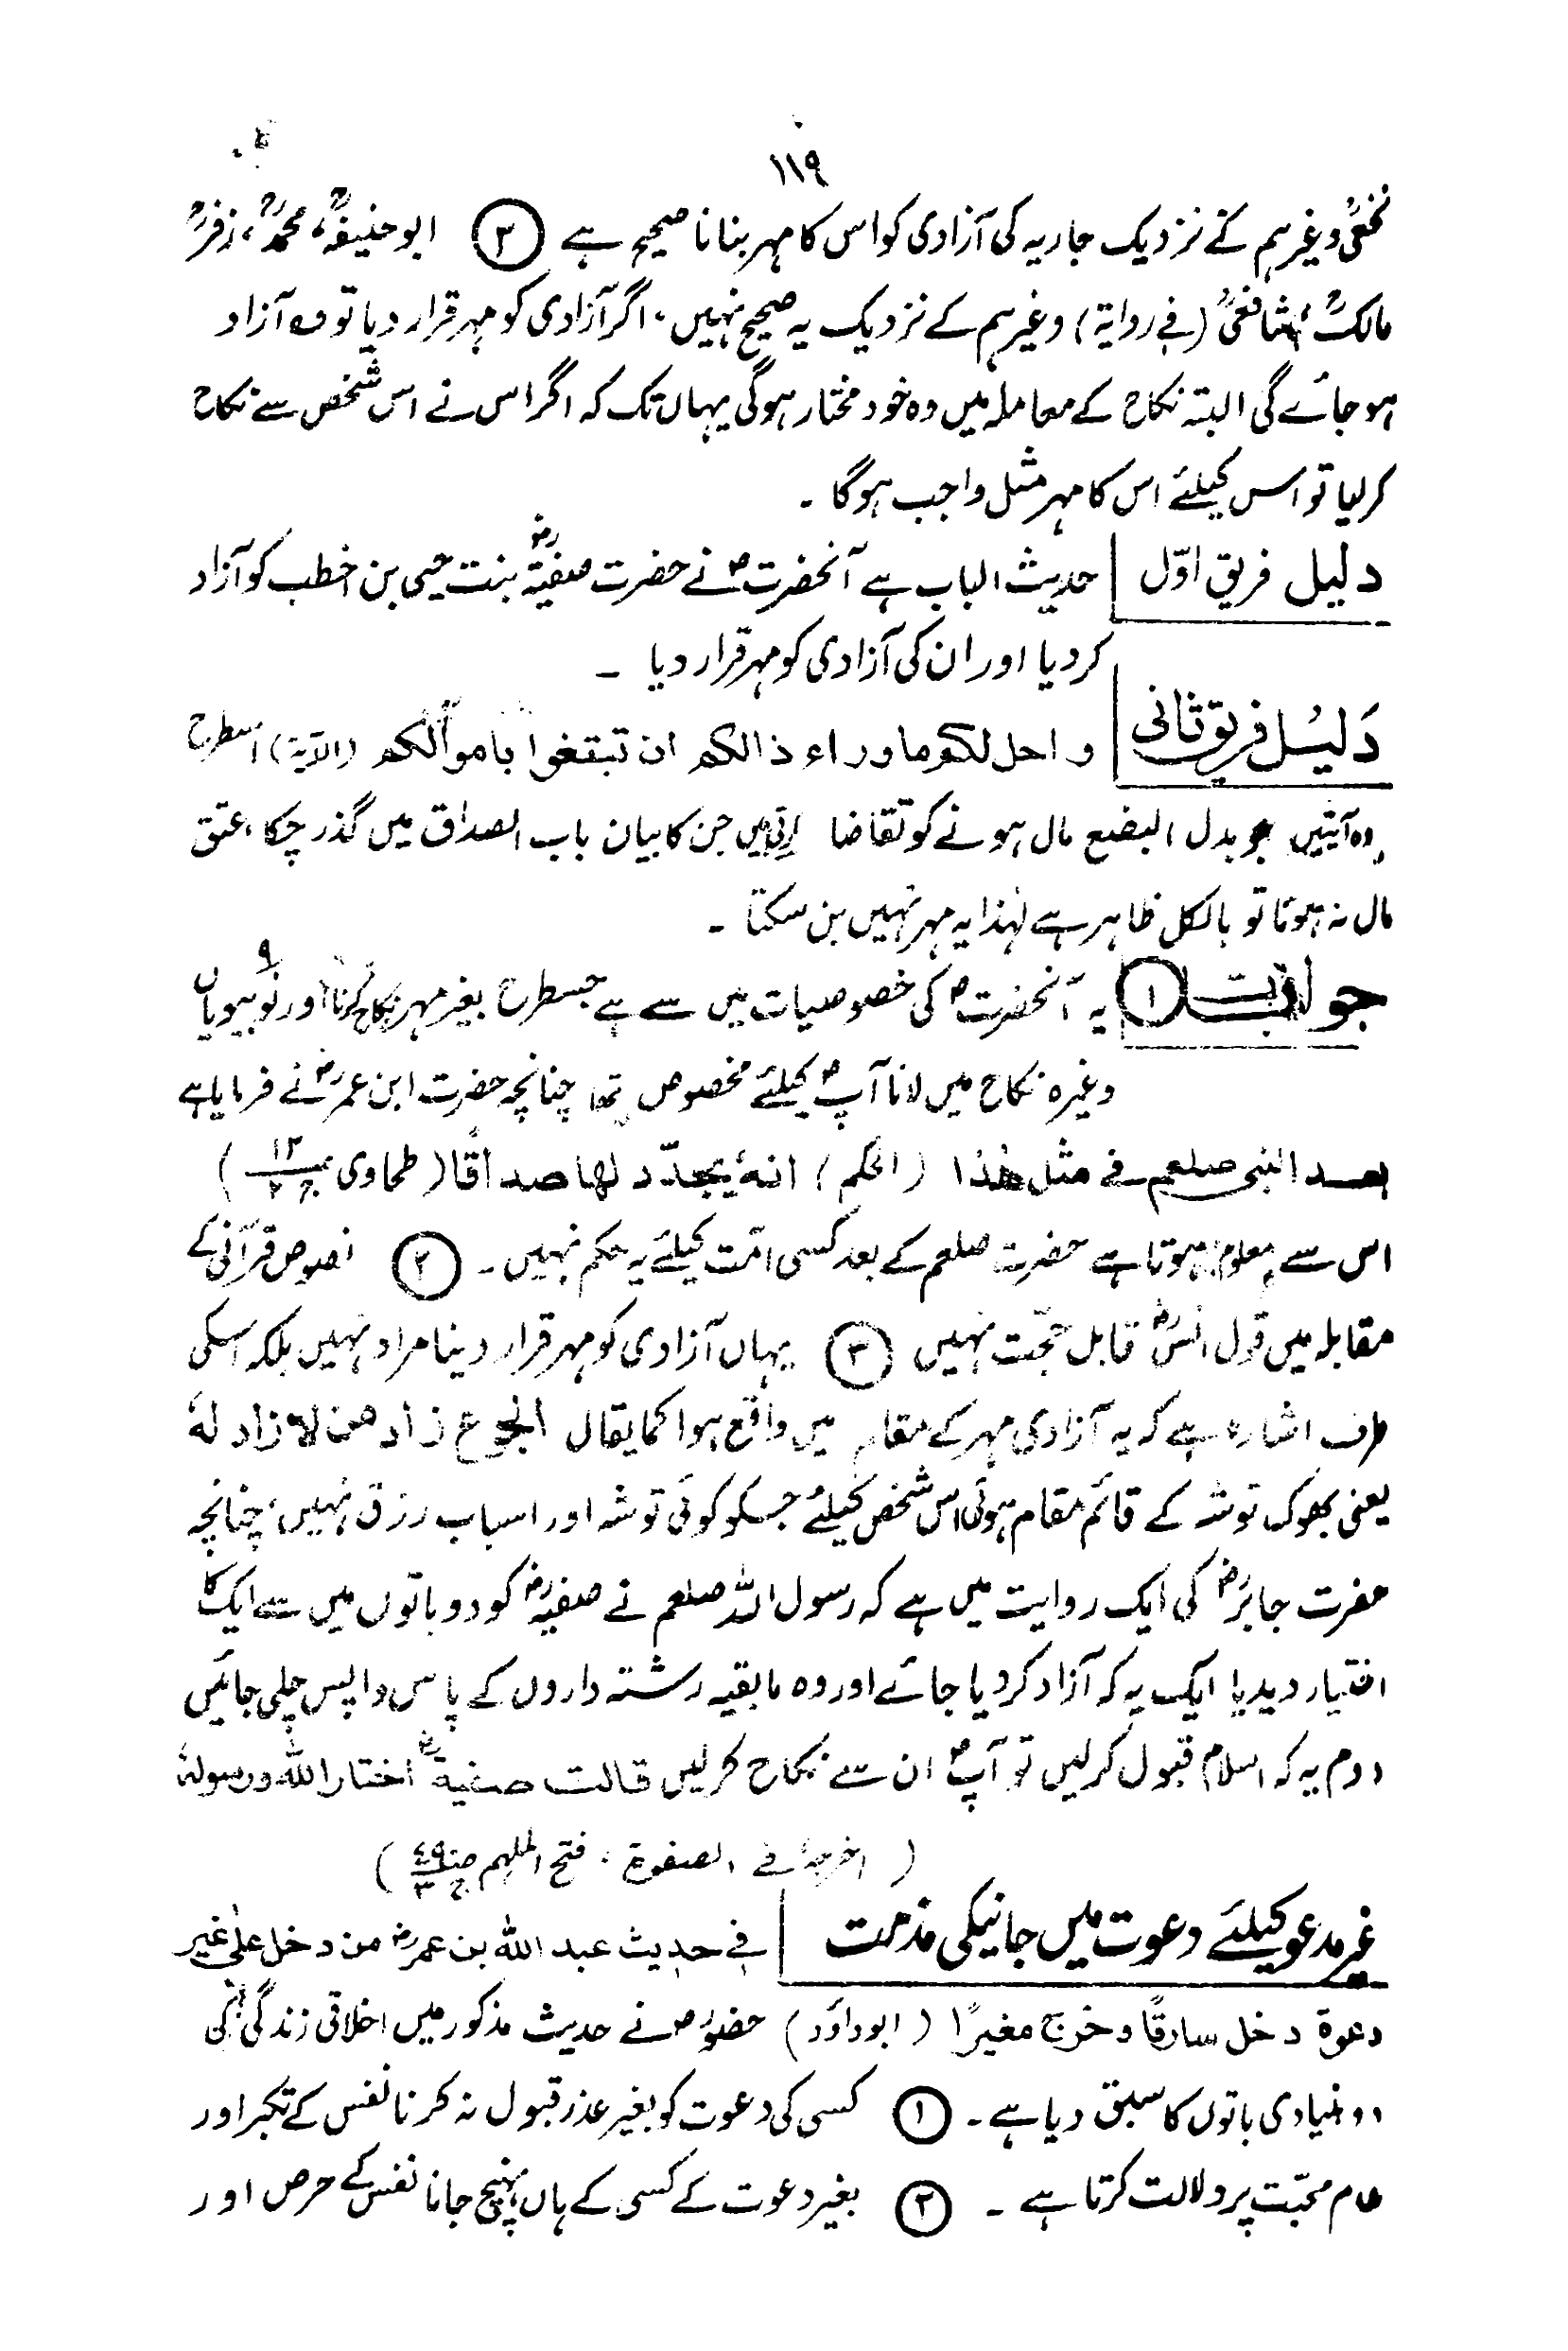 ۱۱۹
نخعیؒ وغیرہم کے نزدیک جاریہ کی آزادی کو اس کا مہر بنانا صحیح ہے ② ابوحنیفہؒ، محمدؒ، زفرؒ
مالکؒ، شافعیؒ (فی روایة) وغیرہم کے نزدیک یہ صحیح نہیں، اگر آزادی کو مہر قرار دیا تو وہ آزاد
ہو جائے گی البتہ نکاح کے معاملہ میں وہ خود مختار ہوگی یہاں تک کہ اگر اس نے اس شخص سے نکاح
کر لیا تو اس کیلئے اس کا مہر مثل واجب ہوگا ۔
دلیل فریق اوّل حدیث الباب ہے آنحضرتؐ نے حضرت صفیۃؓ بنت حیی بن اخطب کو آزاد
کر دیا اور ان کی آزادی کو مہر قرار دیا ۔
دَلیُل فریق ثانی واحل لکم ما وراء ذالکم ان تبتغوا باموالکم (الآیة) اسطرح
وہ آیتیں جو بدل البضع مال ہونے کو تقاضا کرتی ہیں جن کا بیان باب الصداق میں گذر چکا، عتق
مال نہ ہونا تو بالکل ظاہر ہے لہٰذا یہ مہر نہیں بن سکتا ۔
جوابات ① یہ آنحضرتؐ کی خصوصیات میں سے ہے جسطرح بغیر مہر نکاح کرنا اور نو ۹ بیویاں
وغیرہ نکاح میں لانا آپؐ کیلئے مخصوص تھا چنانچہ حضرت ابن عمرؓ نے فرمایا ہے
بعد النبی صلعم فی مثل ھٰذا (الحکم) انہٗ یجدّد لھا صداقًا (طحاوی ج۲ ص۱۲)
اس سے معلوم ہوتا ہے حضرت صلعم کے بعد کسی امّت کیلئے یہ حکم نہیں ۔ ② نصوص قرآنی کے
مقابلہ میں قول انسؓ قابل حجّت نہیں ③ یہاں آزادی کو مہر قرار دینا مراد نہیں بلکہ اسکی
طرف اشارہ ہے کہ یہ آزادی مہر کے مقام میں واقع ہوا کما یقال الجوع زاد من لا زاد لہٗ
یعنی بھوک توشہ کے قائم مقام ہوئی اس شخص کیلئے جسکو کوئی توشہ اور اسباب رزق نہیں، چنانچہ
حضرت جابرؓ کی ایک روایت میں ہے کہ رسول اللہ صلعم نے صفیہؓ کو دو باتوں میں سے ایک کا
اختیار دیدیا ایک یہ کہ آزاد کر دیا جائے اور وہ مابقیہ رشتہ داروں کے پاس واپس چلی جائیں
دوم یہ کہ اسلام قبول کرلیں تو آپؐ ان سے نکاح کرلیں قالت صفیةؓ اختار اللہ ورسولہٗ
(اخرجہٗ فی الصفوة، فتح الملہم ج۳ ص۴۹)
غیر مدعو کیلئے دعوت میں جانیکی مذمت فی حدیث عبد اللہ بن عمرؓ من دخل علیٰ غیر
دعوة دخل سارقًا وخرج مغیرًا (ابوداؤد) حضورؐ نے حدیث مذکور میں اخلاقی زندگی کی
دو بنیادی باتوں کا سبق دیا ہے ۔ ① کسی کی دعوت کو بغیر عذر قبول نہ کرنا نفس کے تکبر اور
عدم محبّت پر دلالت کرتا ہے ۔ ② بغیر دعوت کے کسی کے ہاں پہنچ جانا نفس کے حرص اور